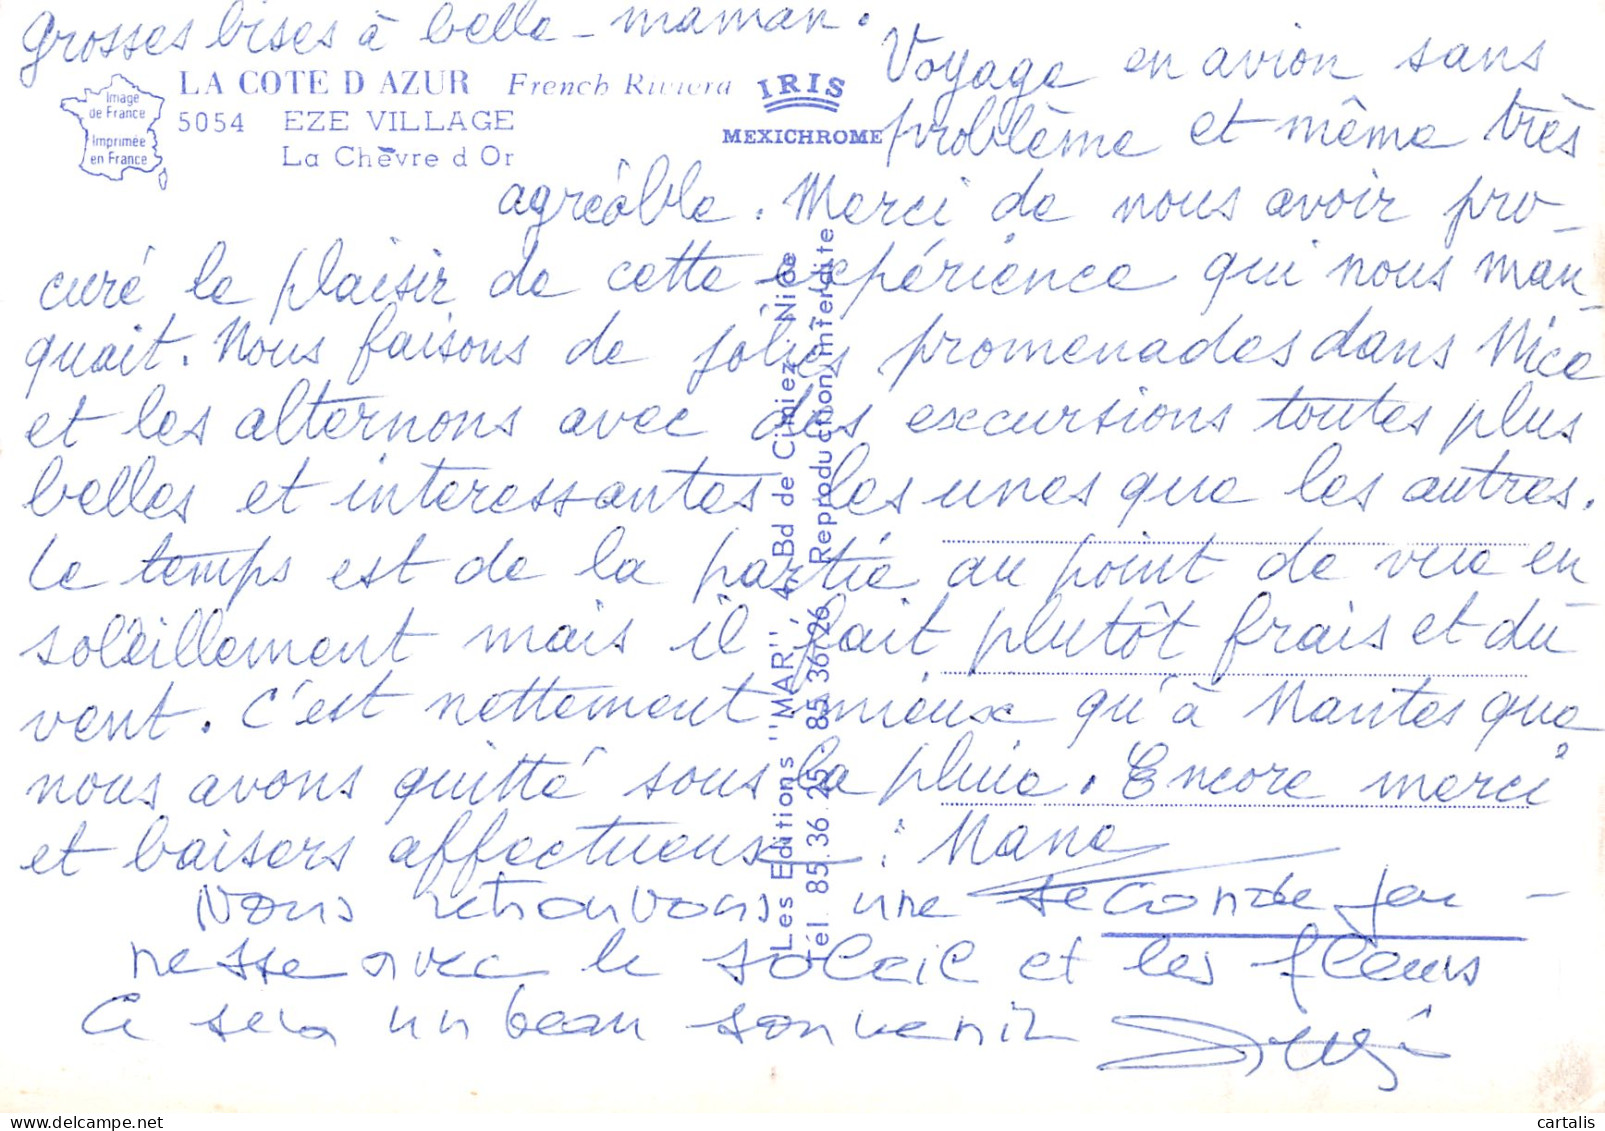 Grosses bises à belle-maman.
Image
de France
Imprimée
en France
LA COTE D AZUR French Riviera
5054 EZE VILLAGE
La Chèvre d Or
IRIS
MEXICHROME
Voyage en avion sans
problème et même très
agréable. Merci de nous avoir pro-
curé le plaisir de cette expérience qui nous man-
quait. Nous faisons de jolies promenades dans Nice
et les alternons avec des excursions toutes plus
belles et interessantes les unes que les autres.
Le temps est de la partie au point de vue en
soleillement mais il fait plutôt frais et du
vent. C'est nettement mieux qu'à Nantes que
nous avons quitté sous la pluie. Encore merci
et baisers affectueux : Mane
Nous retrouvons une seconde jeu-
nesse avec le soleil et les fleurs
Ce sera un beau souvenir
Les Editions "MAR", 4, Bd de Cimiez - Nice
Tél. 85.36.25 - 85.36.26 Reproduction interdite
cartalis